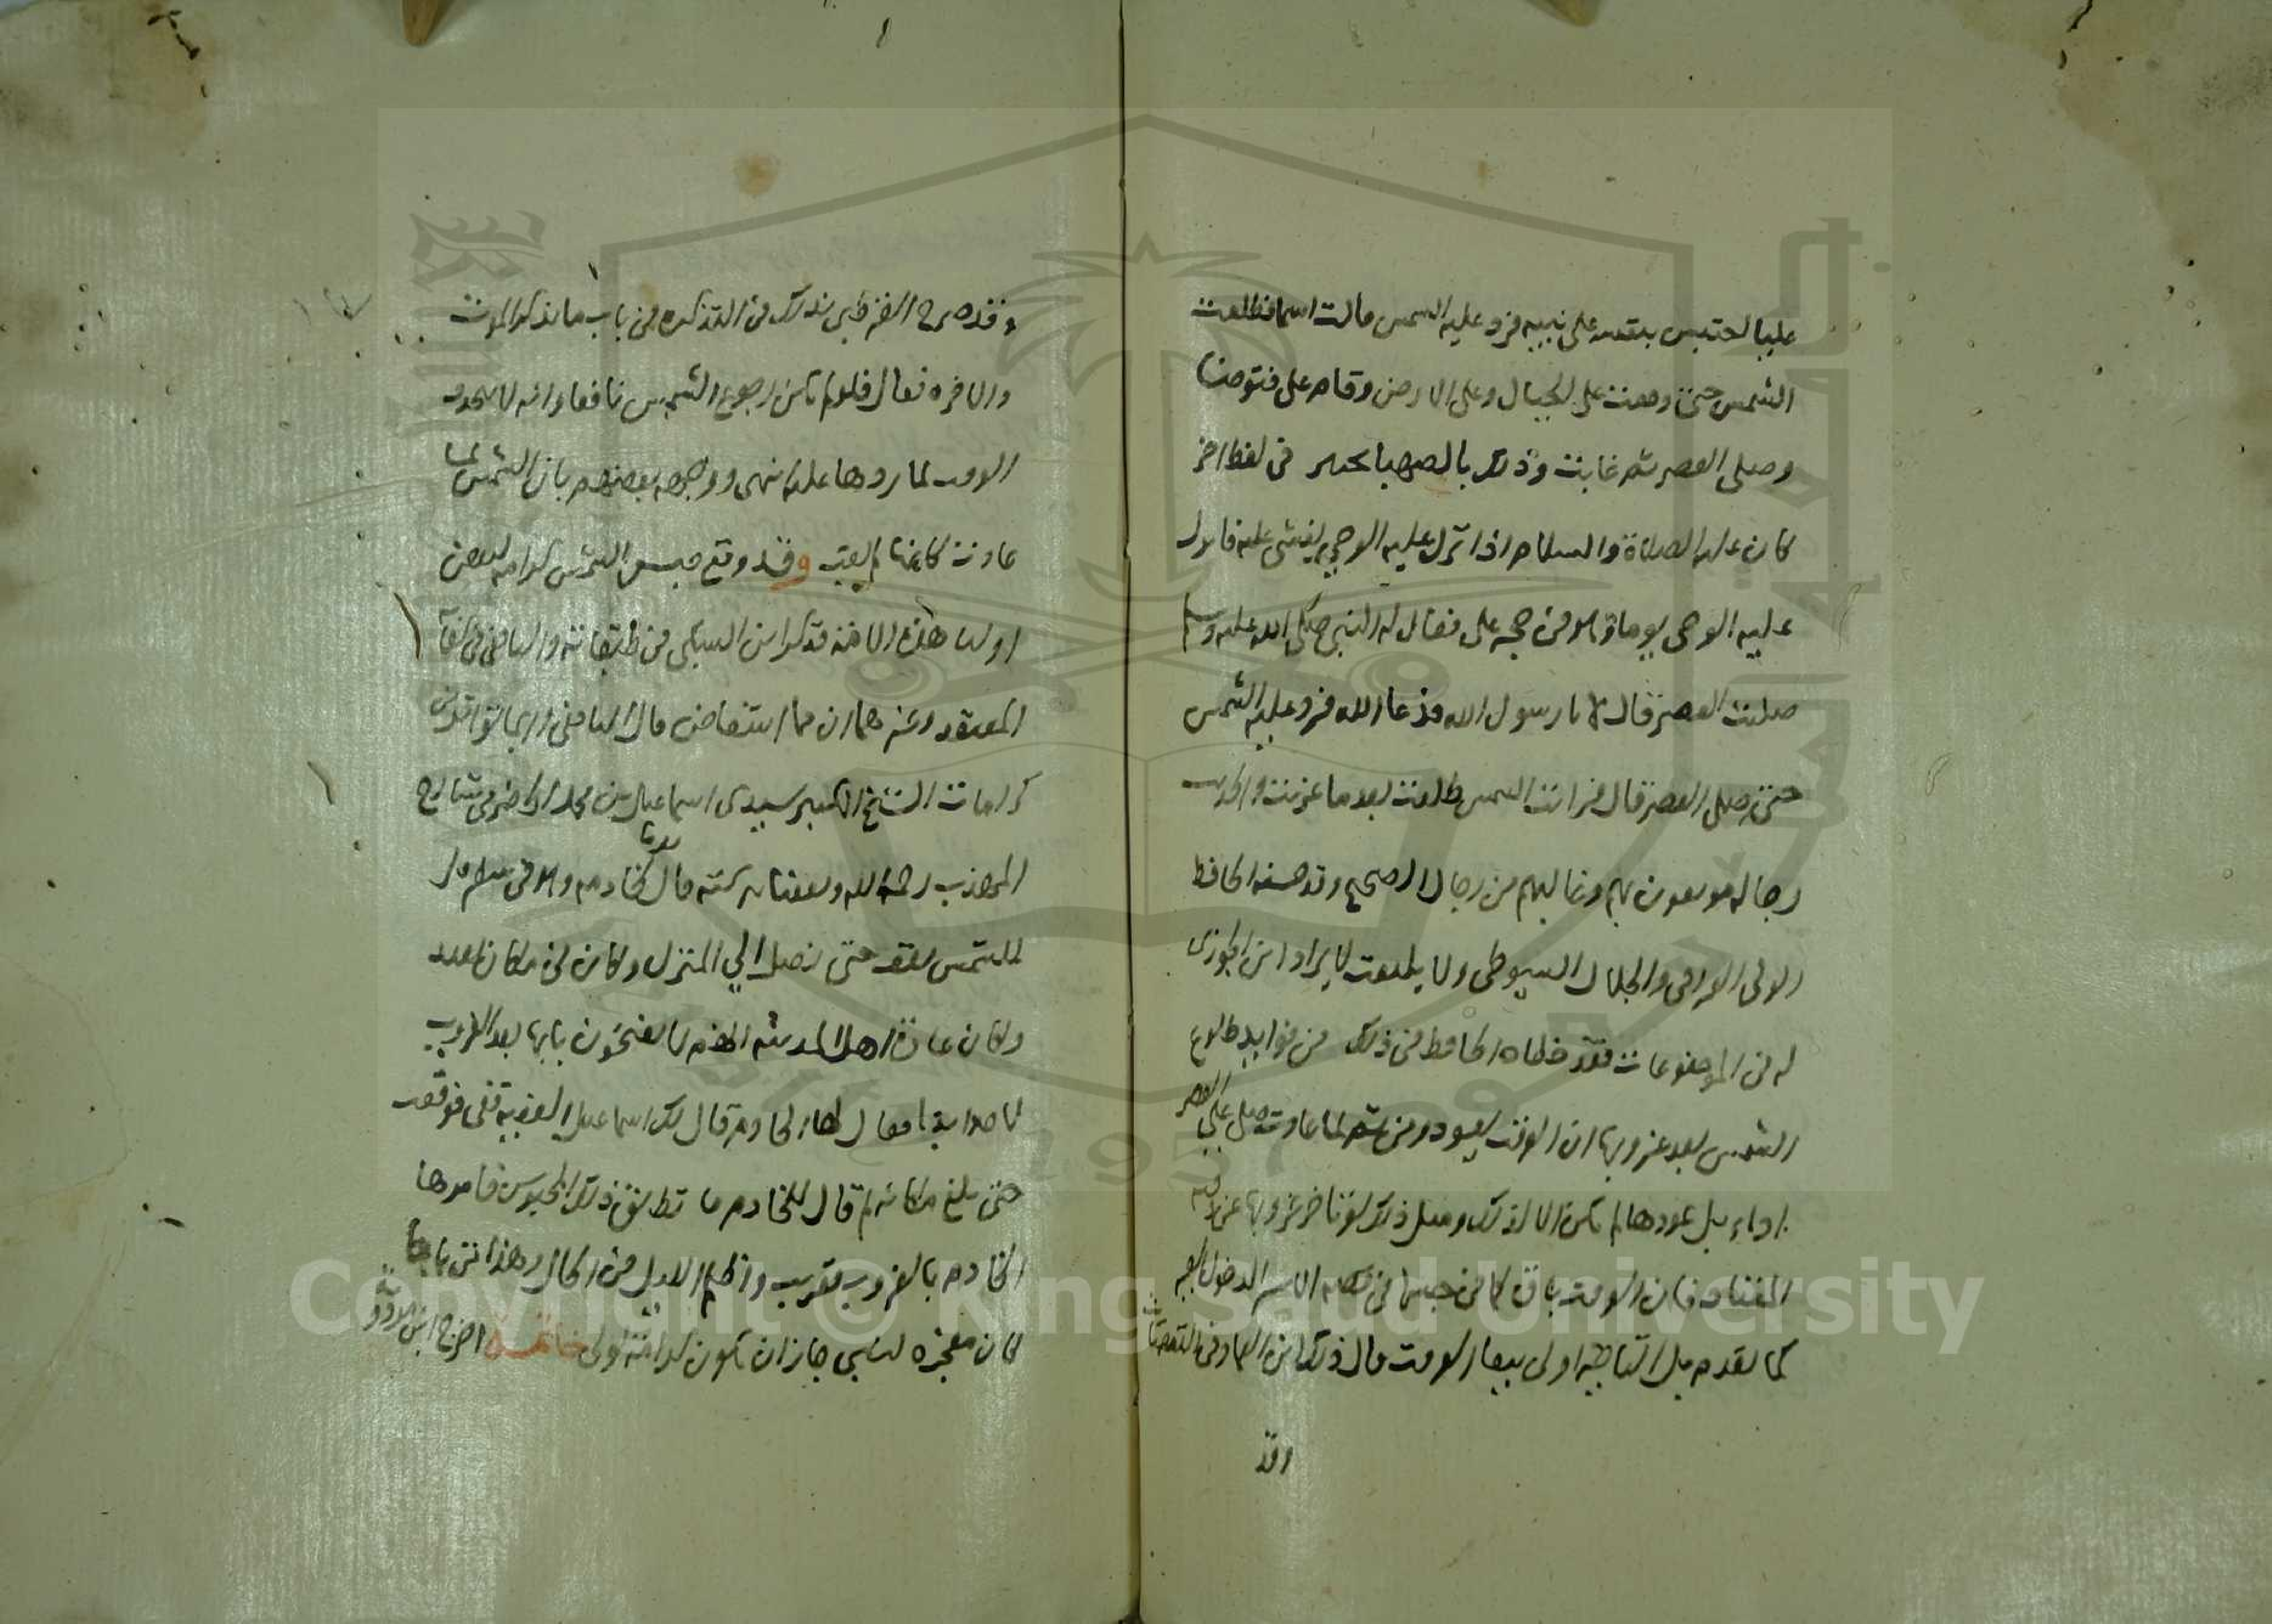 عليا احتبس بنفسه على نبيه فرد عليه الشمس قالت اسما فطلعت
الشمس حتى وقعت على الجبال وعلى الارض وقام على فتوضا
وصلى العصر ثم غابت وذلك بالصهبا بخيبر في لفظ اخر
كان عليه الصلاة والسلام اذا نزل عليه الوحي يغشى عليه فانزل
عليه الوحي يوما وهو في حجر علي فقال له النبي صلى الله عليه وسلم
صليت العصر قال لا يا رسول الله فدعا الله فرد عليه الشمس
حتى صلى العصر قال فرايت الشمس طلعت بعد ما غربت والحديث
رجاله موثقون بهم وغالبهم من رجال الصحيح وقد حسنه الحافظ
الولي العراقي والجلال السيوطي ولا يلتفت لايراد ابن الجوزي
له في الموضوعات فقد خطاه الحافظ في ذلك من فوايد طلوع
الشمس بعد غروبها ان الوقت يعود ومن ثم لما عادت صلى علي العصر
اداء بل عودها لم يكن الا لذلك ومثل ذلك لو تاخر غروبها عن وقته
المعتاد فان الوقت باق كما في حبسها في
كما تقدم بل اولى ببقا الوقت قال ذلك ابن العماد في
وقد
وقد صرح القرطبي بذلك في التذكرة في باب ما يذكر الموت
والاخرة فقال فلو لم يكن رجوع الشمس نافعا وانه لا يتجدد
الوقت لما ردها عليه انتهى ووجهه بعضهم بان الشمس لما
عادت كانها لم تغب وقد وقع حبس الشمس كرامة لبعض
اوليا هذه الامة فذكر ابن السبكي في طبقاته واليافعي في
المعتقد وغيرهما ان مما استفاض قال اليافعي وربما تواتر من
كرامات الشيخ الكبير سيدي اسماعيل بن محمد الحضرمي شارح
المهذب رحمه الله ونفعنا ببركته قال يوما لخادمه وهو في سفر قل
للشمس تقف حتى نصل الى المنزل وكان في مكان بعيد
وكان عادة اهل المدينة انهم لا يفتحون بابها بعد الغروب
لاحد ابدا فقال لها الخادم قال لك اسماعيل الفقيه قفي فوقفت
حتى بلغ مكانه ثم قال للخادم ما تطلق ذلك المحبوس فامرها
الخادم بالغروب فغربت واظلم الليل في الحال وهذا
كان معجزة لنبي جاز ان يكون كرامة لولي خاتمة اخرج ابن